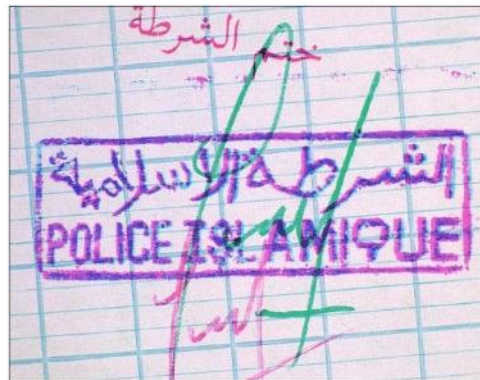 ختم الشرطة
الشرطة الاسلامية
POLICE ISLAMIQUE